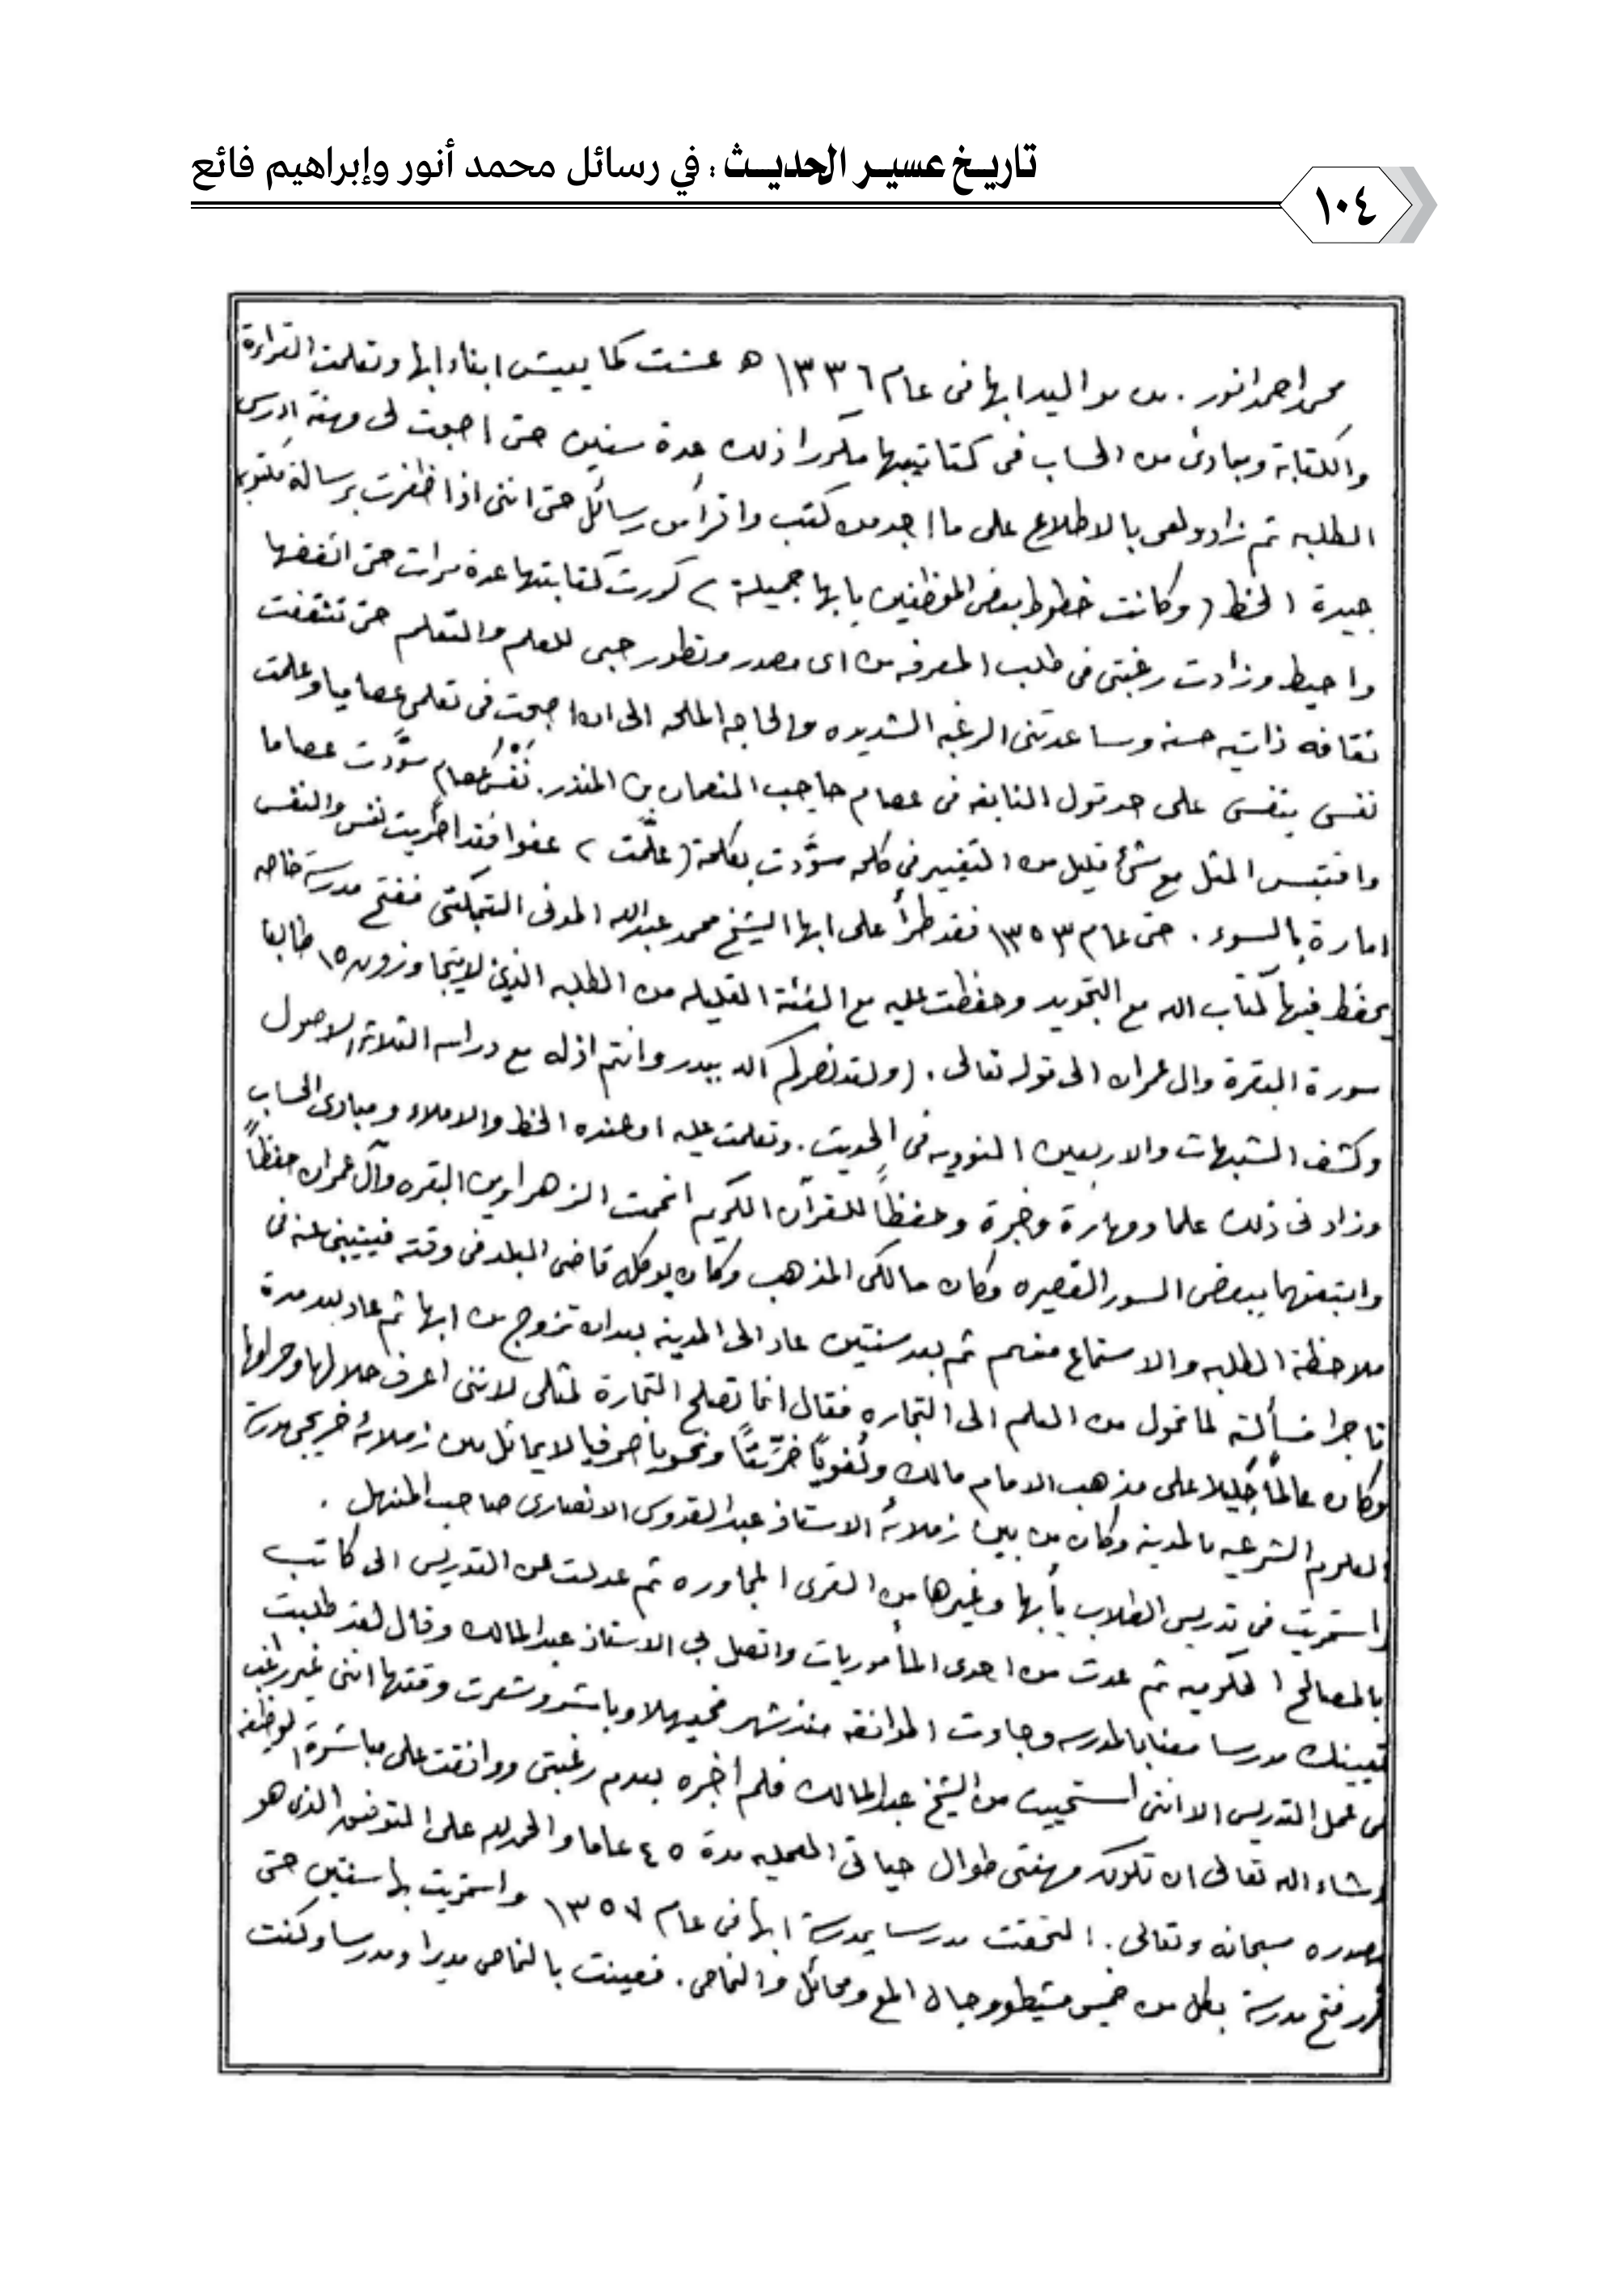 تاريخ عسير الحديث : في رسائل محمد أنور وإبراهيم فائع
١٠٤
محمد احمد انور . من مواليد ابها فى عام ١٣٣٦ ه عشت كما يعيش ابناء ابها وتعلمت القراءة
والكتابة ومبادئ من الحساب فى كتاتيبها مكررا ذلك عدة سنين حتى اصبحت لى مهنة ادرس
الطلبه ثم زاد ولعى بالاطلاع على ما اجد من كتب واقرأ من رسائل حتى اننى اذا ظفرت برسالة مكتوبه
جيدة الخط ( وكانت خطوط بعض الموظفين بابها جميلة ) كررت كتابتها عدة مرات حتى اتقنها
واحيط وزادت رغبتى فى طلب المعرفه من اى مصدر وتطور حبى للعلم والتعلم حتى تثقفت
ثقافه ذاتيه حسنه وساعدتنى الرغبه الشديده والحاجه الملحه الى ان اصبحت فى تعلمى عصاميا وعلمت
نفسى بنفسى على حد قول النابغه فى عصام حاجب النعمان بن المنذر . نَفْسُ عصامٍ سوَّدت عصاما
واقتبس المثل مع شئ قليل من التغيير فى كلمه سوَّدت بكلمة ( علَّمت ) عفوا فقد اطريت نفسى والنفس
امارة بالسوء . حتى عام ١٣٥٣ فقد طرأ على ابها الشيخ محمد عبدالله المدنى التنبكتى ففتح مدرسة خاصه
يحفظ فيها كتاب الله مع التجويد وحفظت عليه مع الفئة القليله من الطلبه الذين لا يتجاوزون ١٥ طالبا
سورة البقرة وال عمران الى قوله تعالى . ( ولقد نصركم الله ببدر وانتم اذله مع دراسه الثلاثة الاصول
وكشف الشبهات والاربعين النوويه فى الحديث . وتعلمت عليه او عنده الخط والاملاء ومبادئ الحساب
وزاد فى ذلك علما ومهارة وخبرة وحفظاً للقرآن الكريم اتممت الزهراوين البقره وآل عمران حفظاً
واتبعتهما ببعض السور القصيره وكان مالكى المذهب وكان يوكله قاضى البلد فى وقته فينيبنى عنه فى
ملاحظة الطلبه والاستماع منهم ثم بعد سنتين عاد الى المدينه بعد ان تزوج من ابها ثم عاد بعد مدة
تاجرا فسألته لما تحول من العلم الى التجاره فقال انما تصلح التجارة لمثلى لاننى اعرف حلالها وحرامها
وكان عالماً جليلا على مذهب الامام مالك ولغوياً خرِّيتاً ونحويا صرفيا لا يماثل من زملائه خريجى مدرسة
العلوم الشرعيه بالمدينه وكان من بين زملائه الاستاذ عبدالقدوس الانصارى صاحب المنهل .
استمريت فى تدريس الطلاب بأبها وغيرها من القرى المجاوره ثم عدلت عن التدريس الى كاتب
بالمصالح الحكوميه ثم عدت من احدى المأموريات واتصل بى الاستاذ عبدالمالك وقال لقد طلبت
تعيينك مدرسا معنا بالمدرسه وجاءت الموافقه منذ شهر فحيهلا وباشر وشعرت وقتها اننى غير راغب
فى عمل التدريس الا اننى استحييت من الشيخ عبدالمالك فلم اخبره بعدم رغبتى ووافقت على مباشرة الوظيفه
وشاء الله تعالى ان تكون مهنتى طوال حياتى العمليه مدة ٤٥ عاما والحمد لله على التوفيق الذى هو
مصدره سبحانه وتعالى . التحقت مدرسا بمدرسة ابها فى عام ١٣٥٧ واستمريت بها سنتين حتى
تقرر فتح مدرسة بكل من خميس مشيط ورجال المع ومحائل والنماص . فعينت بالنماص مديرا ومدرسا وكنت